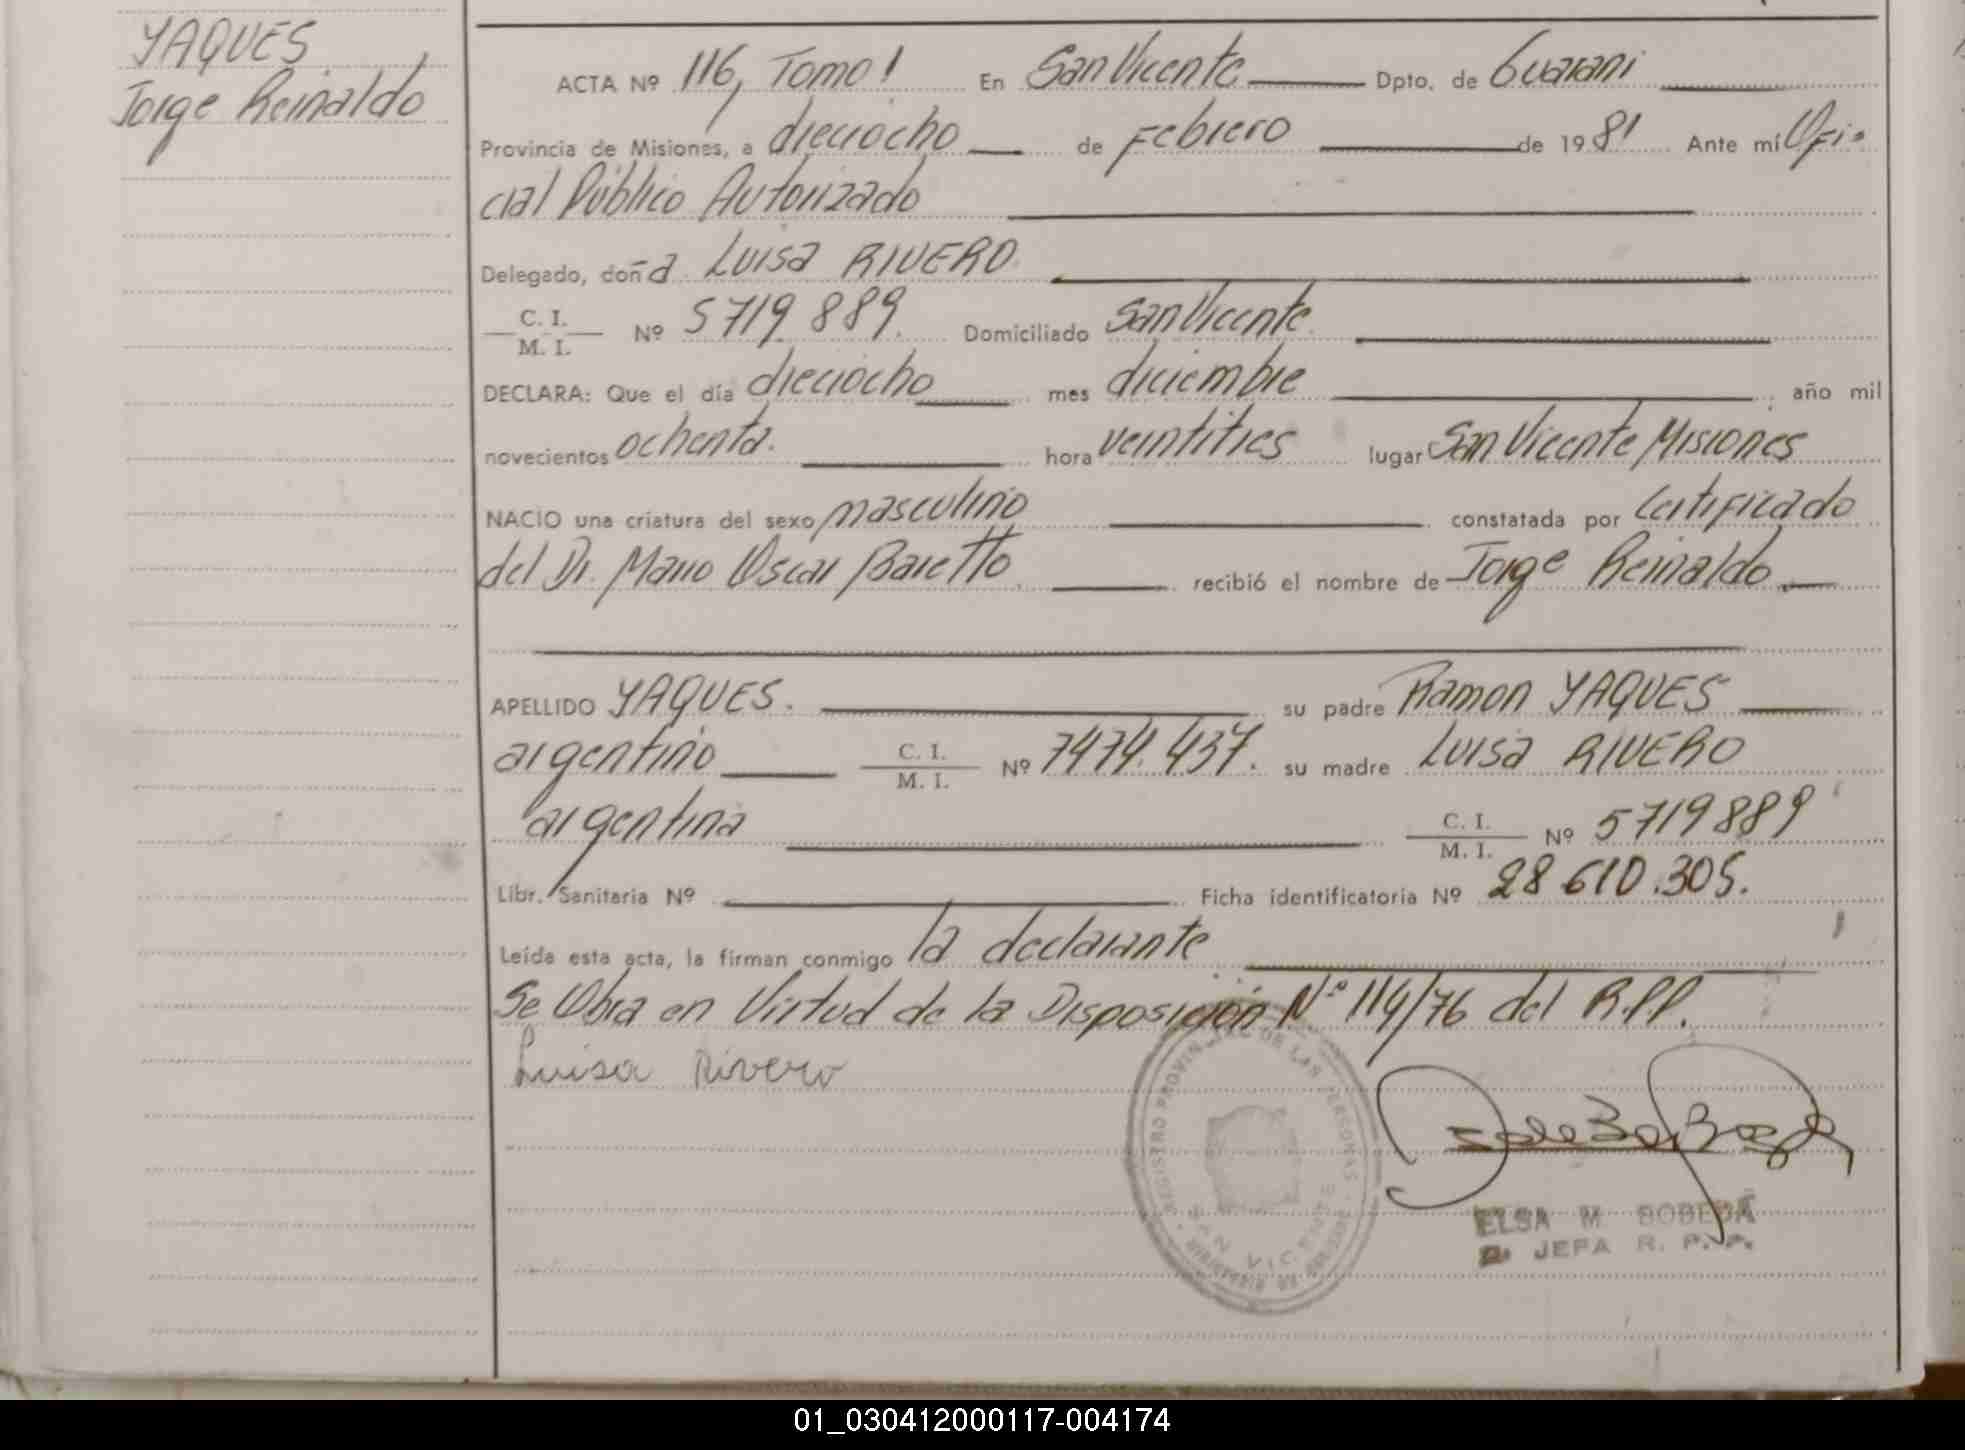 YAQUES
Jorge Reinaldo
ACTA Nº 116, Tomo I En San Vicente Dpto. de Guarani
Provincia de Misiones, a dieciocho de Febrero de 1981 Ante mí Ofi-
cial Público Autorizado
Delegado, doña Luisa RIVERO
C. I. / M. I. Nº 5719.889. Domiciliado San Vicente
DECLARA: Que el día dieciocho mes diciembre año mil
novecientos ochenta. hora veintitres lugar San Vicente Misiones
NACIO una criatura del sexo masculino constatada por Certificado
del Dr. Mario Oscar Baretto recibió el nombre de Jorge Reinaldo
APELLIDO YAQUES. su padre Ramon YAQUES
argentino C. I. / M. I. Nº 7474.437. su madre Luisa RIVERO
argentina C. I. / M. I. Nº 5719889
Libr. Sanitaria Nº Ficha identificatoria Nº 28.610.305.
Leída esta acta, la firman conmigo la declarante
Se Obra en Virtud de la Disposición Nº 114/76 del R.P.P.
Luisa Rivero
REGISTRO PROVINCIAL DE LAS PERSONAS
SAN VICENTE
ELSA M. BOBEDA
JEFA R. P. P.
01_030412000117-004174